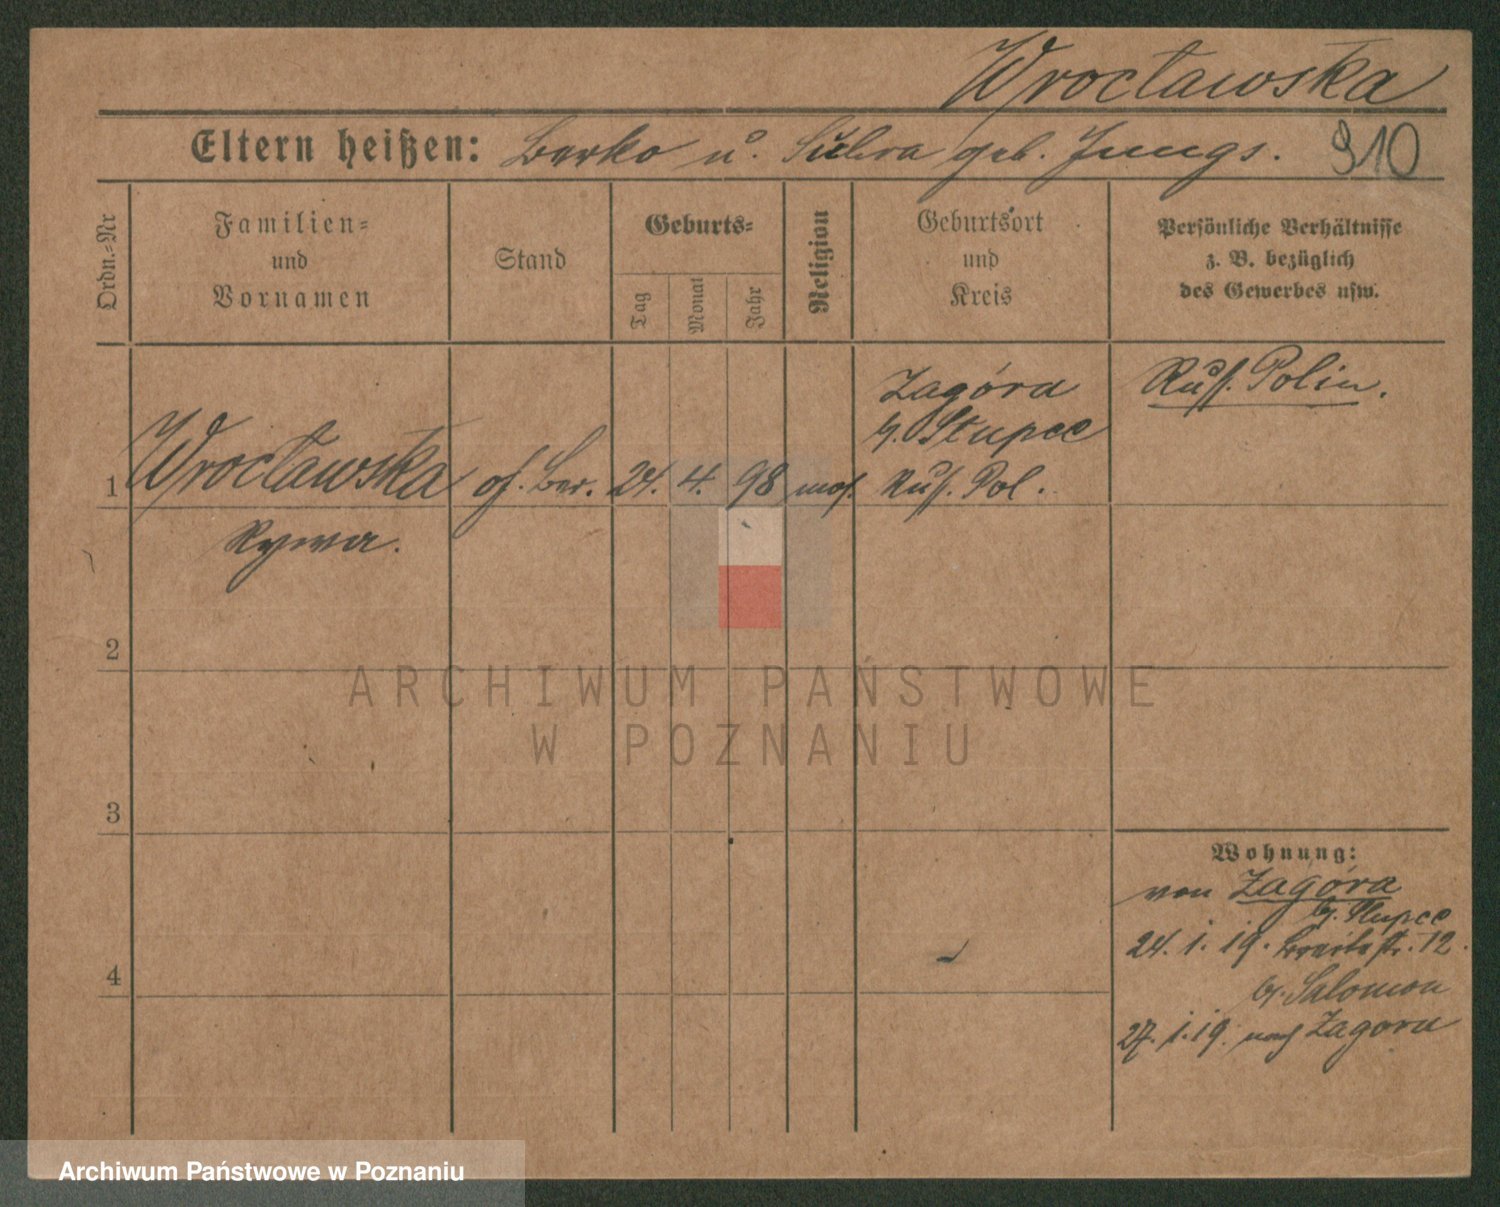 Wrocławska
Eltern heißen: Berko u. geb. Jungs. 910
Ordn.-Nr
Familien-
und
Vornamen
Stand
Geburts-
Tag
Monat
Jahr
Religion
Geburtsort
und
Kreis
Persönliche Verhältnisse
z. B. bezüglich
des Gewerbes usw.
Zagóra
b. Słupce
Russ. Polin.
1 Wrocławska oh. Ber. 24. 4. 98 mos. Russ. Pol.
Rywa.
2
ARCHIWUM PAŃSTWOWE
W POZNANIU
3
Wohnung:
von Zagóra
b. Słupce
4
24. 1. 19. Breitestr. 12.
b. Salomon
27. 1. 19. nach Zagora
Archiwum Państwowe w Poznaniu